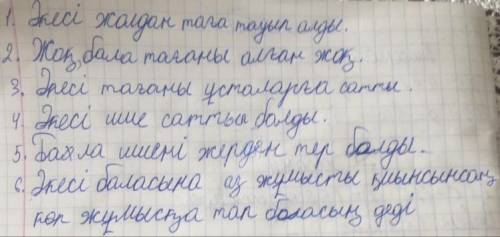 1. Әкесі жолдан таға тауып алды.
2. Жоқ, бала тағаны алған жоқ.
3. Әкесі тағаны ұсталарға сатты.
4. Әкесі шие сатып болды.
5. Балла шиені жерден тер болды.
6. Әкесі баласына аз жұмысты қиынсынсаң
көп жұмысқа тап боласың деді